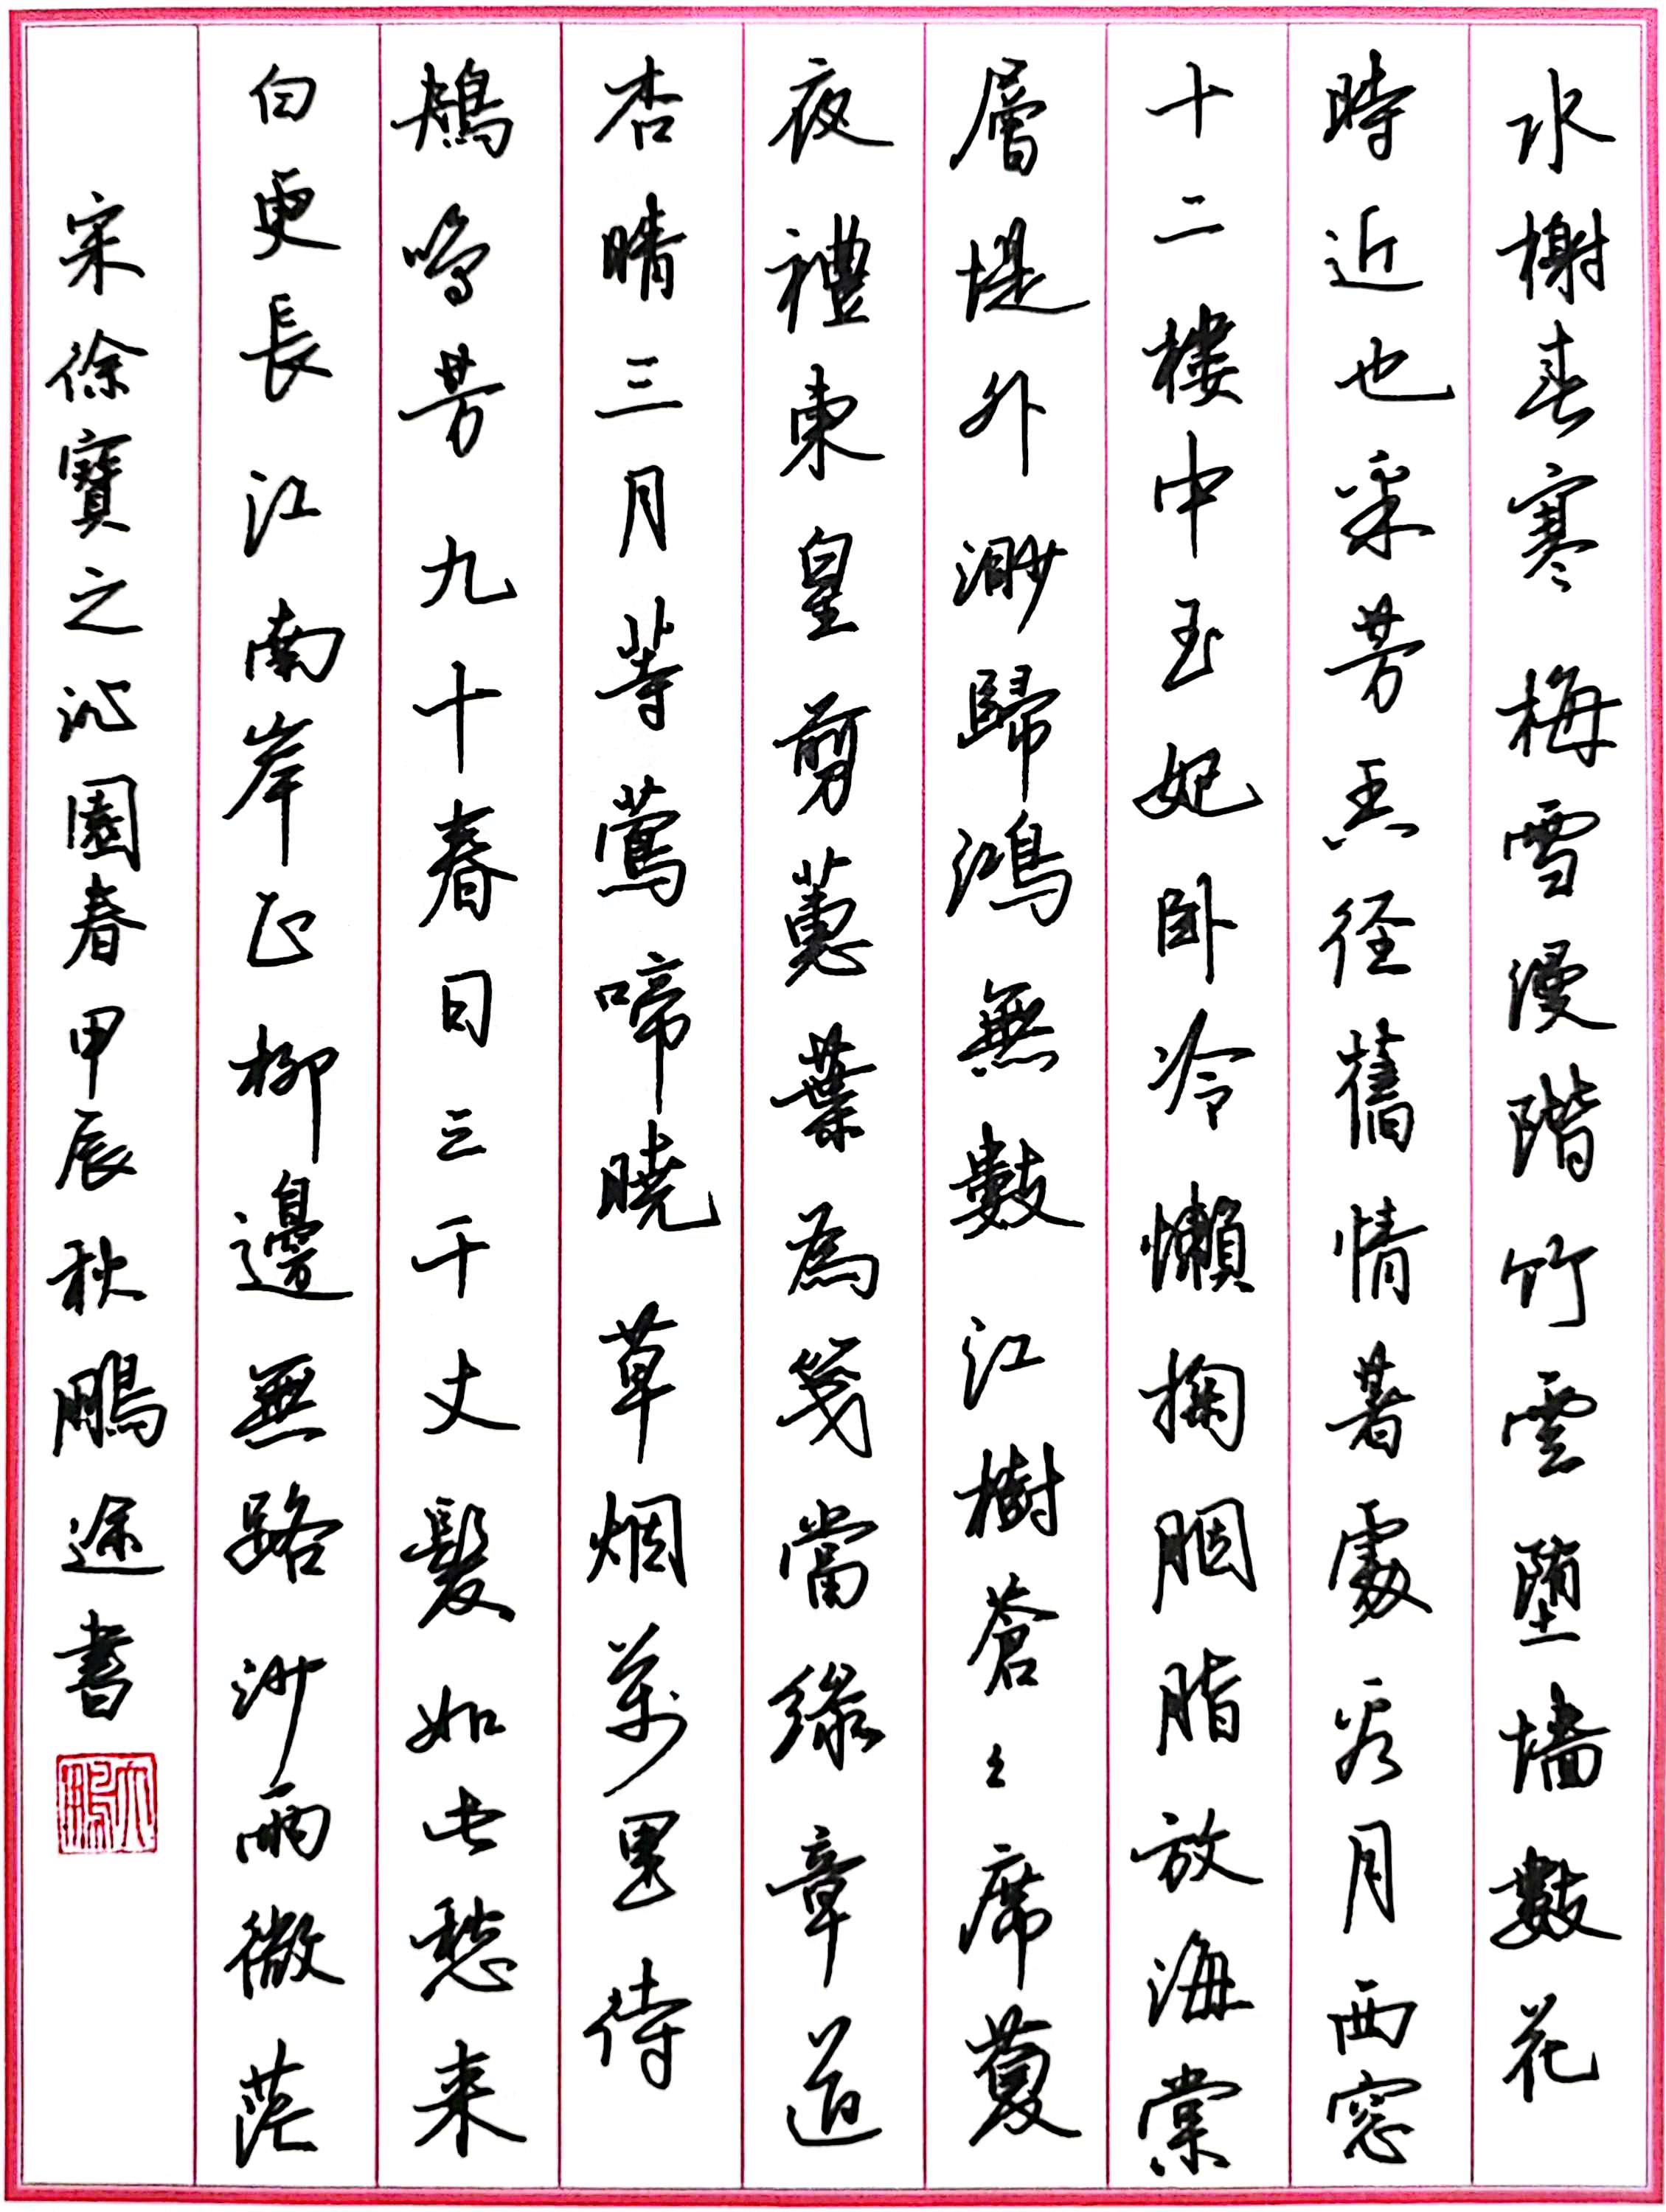 水榭春寒梅雪漫階竹雲墮墙數花
時近也采芳香徑舊情著處看月西窓
十二樓中玉妃卧冷懶掬胭脂放海棠
層堤外渺歸鴻無數江樹蒼々席蕞
夜禮東皇剪蕙葉為箋當綠章道
杏晴三月等鶯啼曉草烟萬里待
鴂鳴芳九十春日三千丈髮如此愁来
白更長江南岸正柳邊無路沙雨微茫
宋徐寶之沁園春甲辰秋鵬途書